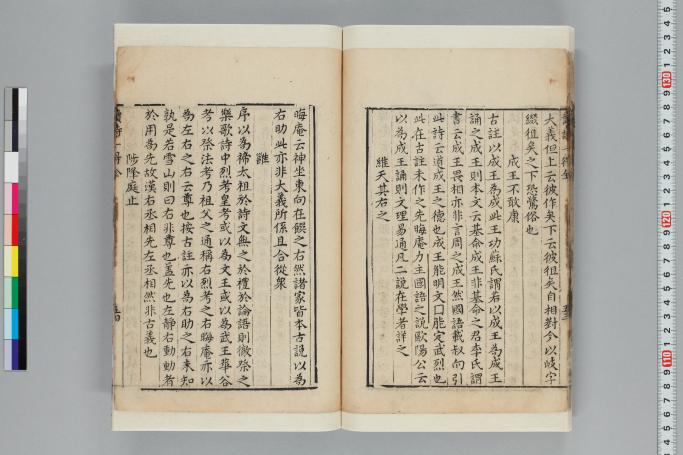 大義但上云彼作矣下云彼徂矣自相對今以岐字
綴徂矣之下恐驚俗也
成王不敢康
古註以成王為成此王功蘇氏謂若以成王為成王
誦之成王則本文云基命成王非基命之君李氏謂
書云成王畏相亦非言周之成王然國語載叔向引
此詩云道成王之德也成王能明文口能定武烈也
此在古註未作之先晦庵力主國語之說歐陽公云
以為成王誦則文理易通凡二說在學者詳之
維天其右之
晦庵云神坐東向在饌之右然諸家皆本古說以為
右助此亦非大義所係且合從眾
雝
序以為禘太祖於詩文無之於禮於論語則徹祭之
樂歌詩中烈考皇考或以為文王或以為武王華谷
考以祭法考乃祖父之通稱右烈考之右晦庵亦以
為左右之右云尊也按古註亦以為右助之右未知
孰是若雪山則曰右非尊也蓋先也左靜右動動者
於用為先故漢右丞相先左丞相然非古義也
陟降庭止